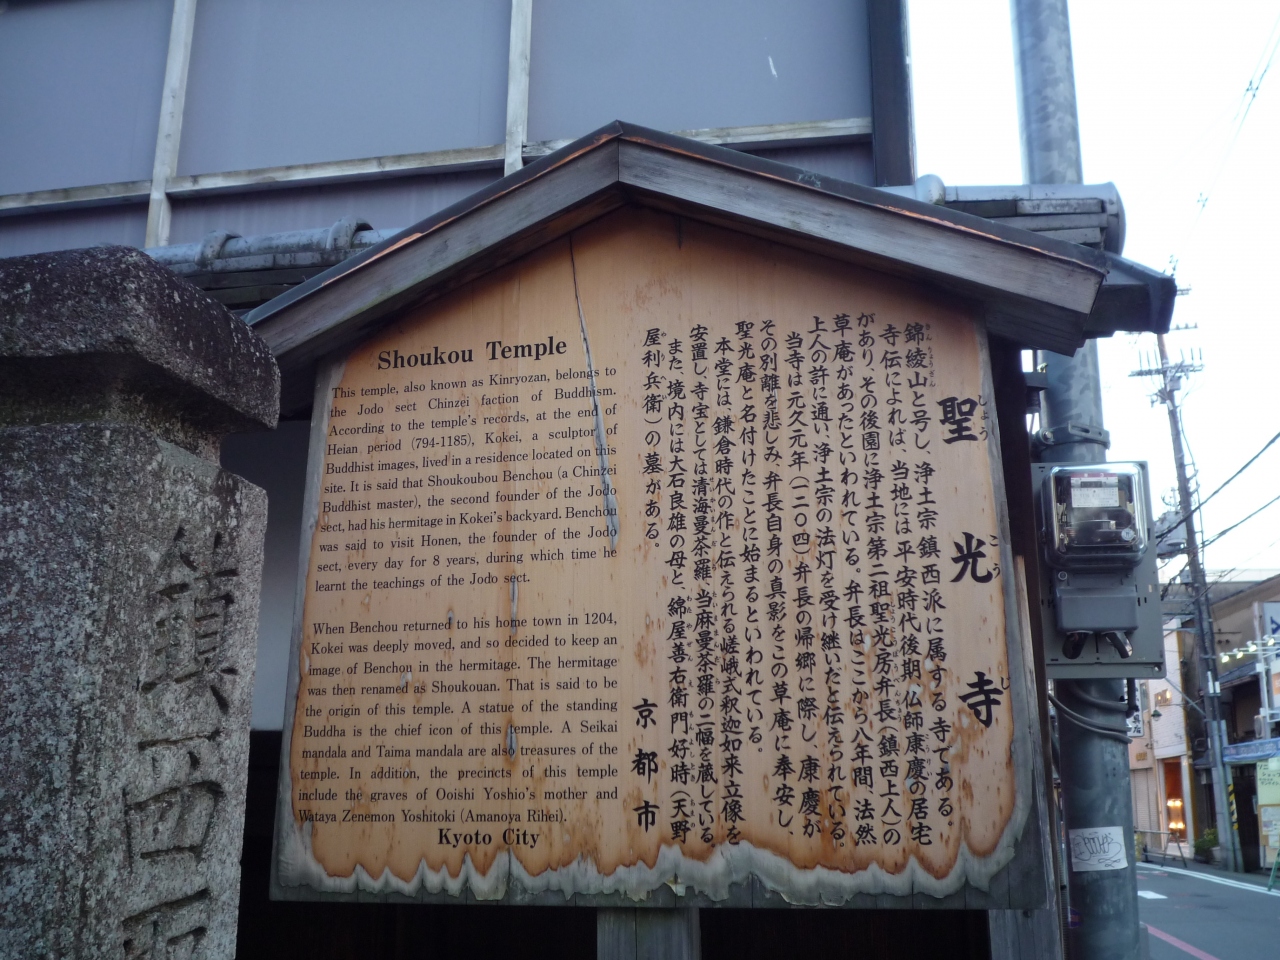 Shoukou Temple
This temple, also known as Kinryozan, belongs to
the Jodo sect Chinzei faction of Buddhism.
According to the temple's records, at the end of
Heian period (794-1185), Kokei, a sculptor of
Buddhist images, lived in a residence located on this
site. It is said that Shoukoubou Benchou (a Chinzei
Buddhist master), the second founder of the Jodo
sect, had his hermitage in Kokei's backyard. Benchou
was said to visit Honen, the founder of the Jodo
sect, every day for 8 years, during which time he
learnt the teachings of the Jodo sect.
When Benchou returned to his home town in 1204,
Kokei was deeply moved, and so decided to keep an
image of Benchou in the hermitage. The hermitage
was then renamed as Shoukouan. That is said to be
the origin of this temple. A statue of the standing
Buddha is the chief icon of this temple. A Seikai
mandala and Taima mandala are also treasures of the
temple. In addition, the precincts of this temple
include the graves of Ooishi Yoshio's mother and
Wataya Zenemon Yoshitoki (Amanoya Rihei).
Kyoto City
聖光寺
錦綾山と号し、浄土宗鎮西派に属する寺である。
寺伝によれば、当地には平安時代後期、仏師康慶の居宅
があり、その後園に浄土宗第二祖聖光房弁長（鎮西上人）の
草庵があったといわれている。弁長はここから八年間、法然
上人の許に通い、浄土宗の法灯を受け継いだと伝えられている。
当寺は元久元年（一二〇四）弁長の帰郷に際し、康慶が
その別離を悲しみ、弁長自身の真影をこの草庵に奉安し、
聖光庵と名付けたことに始まるといわれている。
本堂には、鎌倉時代の作と伝えられる嵯峨式釈迦如来立像を
安置し、寺宝としては清海曼荼羅、当麻曼荼羅の二幅を蔵している
また、境内には大石良雄の母と、綿屋善右衛門好時（天野
屋利兵衛）の墓がある。
京都市